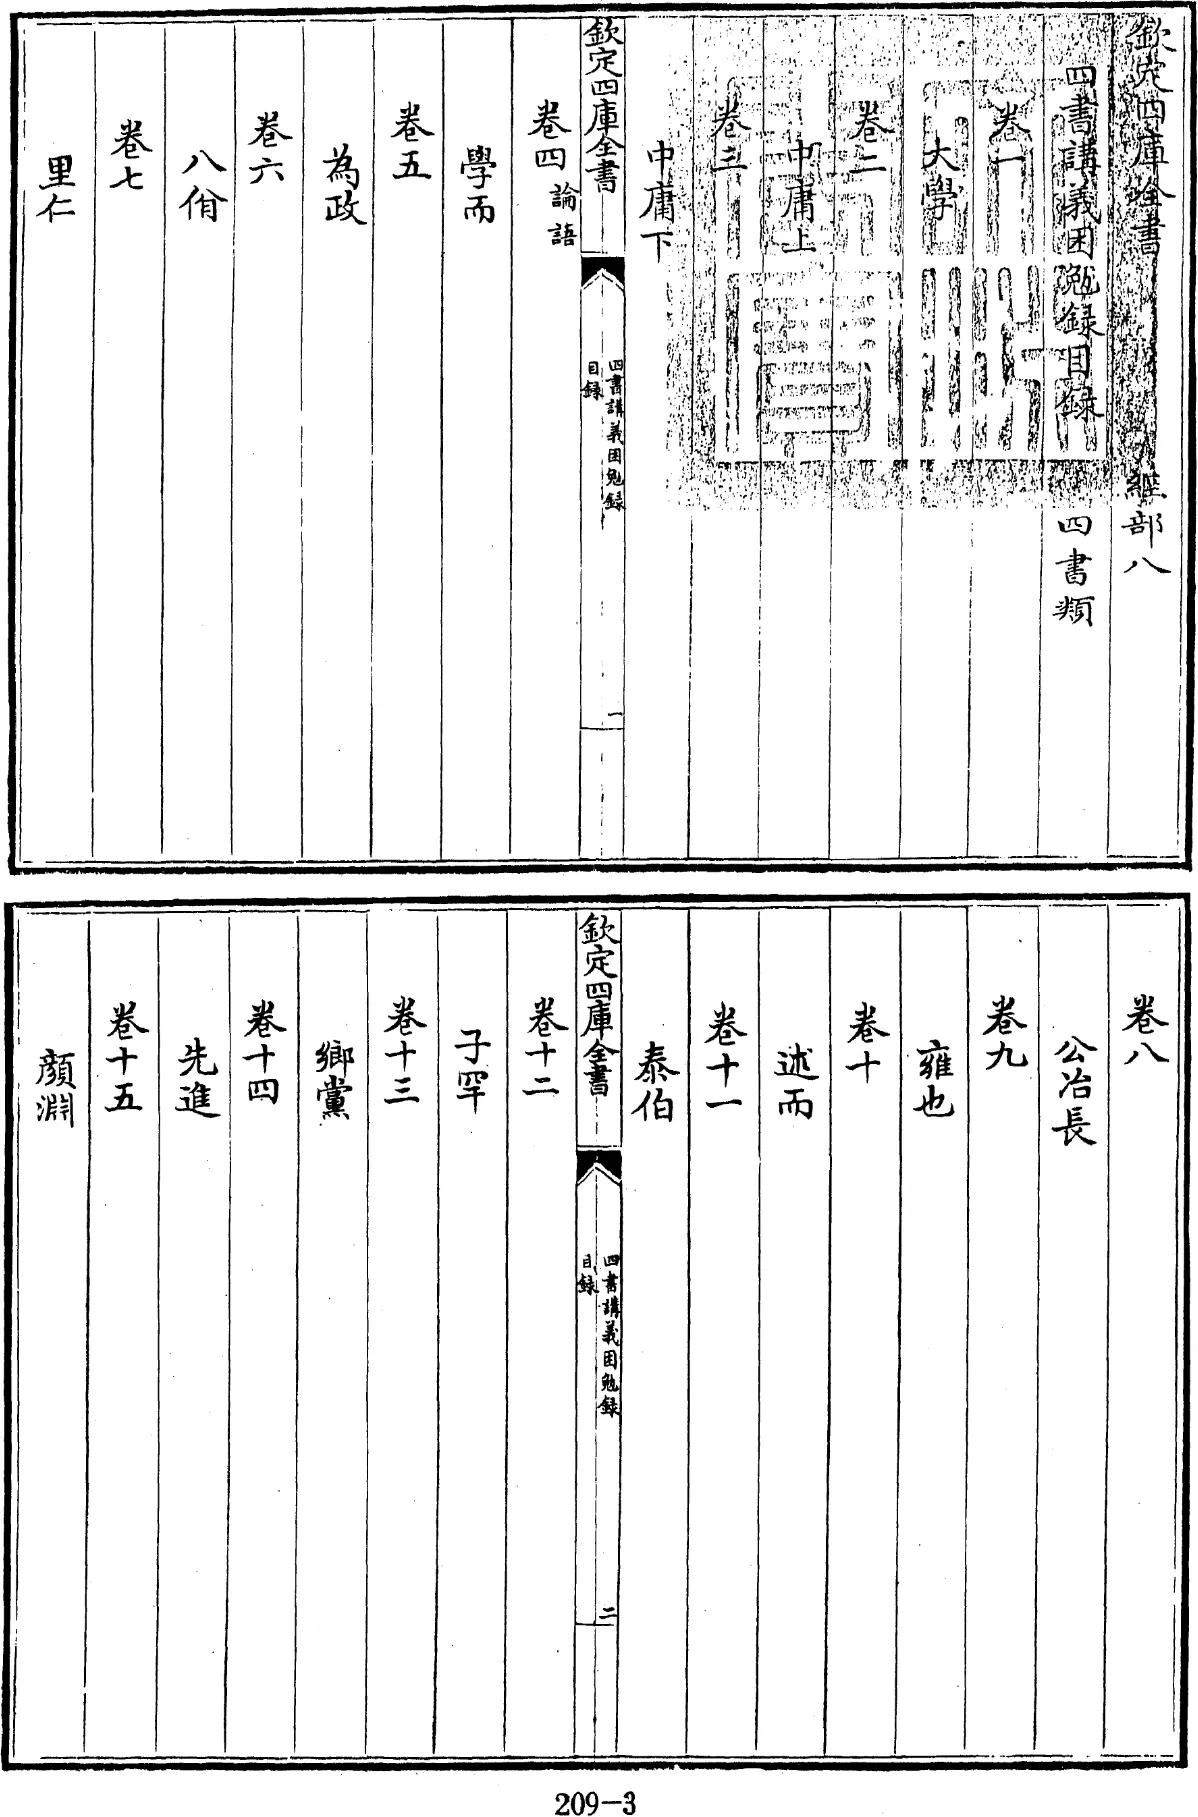 欽定四庫全書　經部八
四書講義困勉録目録　四書類
卷一
大學
卷二
中庸上
卷三
中庸下
欽定四庫全書
四書講義困勉録
目録
一
卷四論語
學而
卷五
為政
卷六
八佾
卷七
里仁
卷八
公冶長
卷九
雍也
卷十
述而
卷十一
泰伯
欽定四庫全書
四書講義困勉録
目録
二
卷十二
子罕
卷十三
鄉黨
卷十四
先進
卷十五
顔淵
209-3